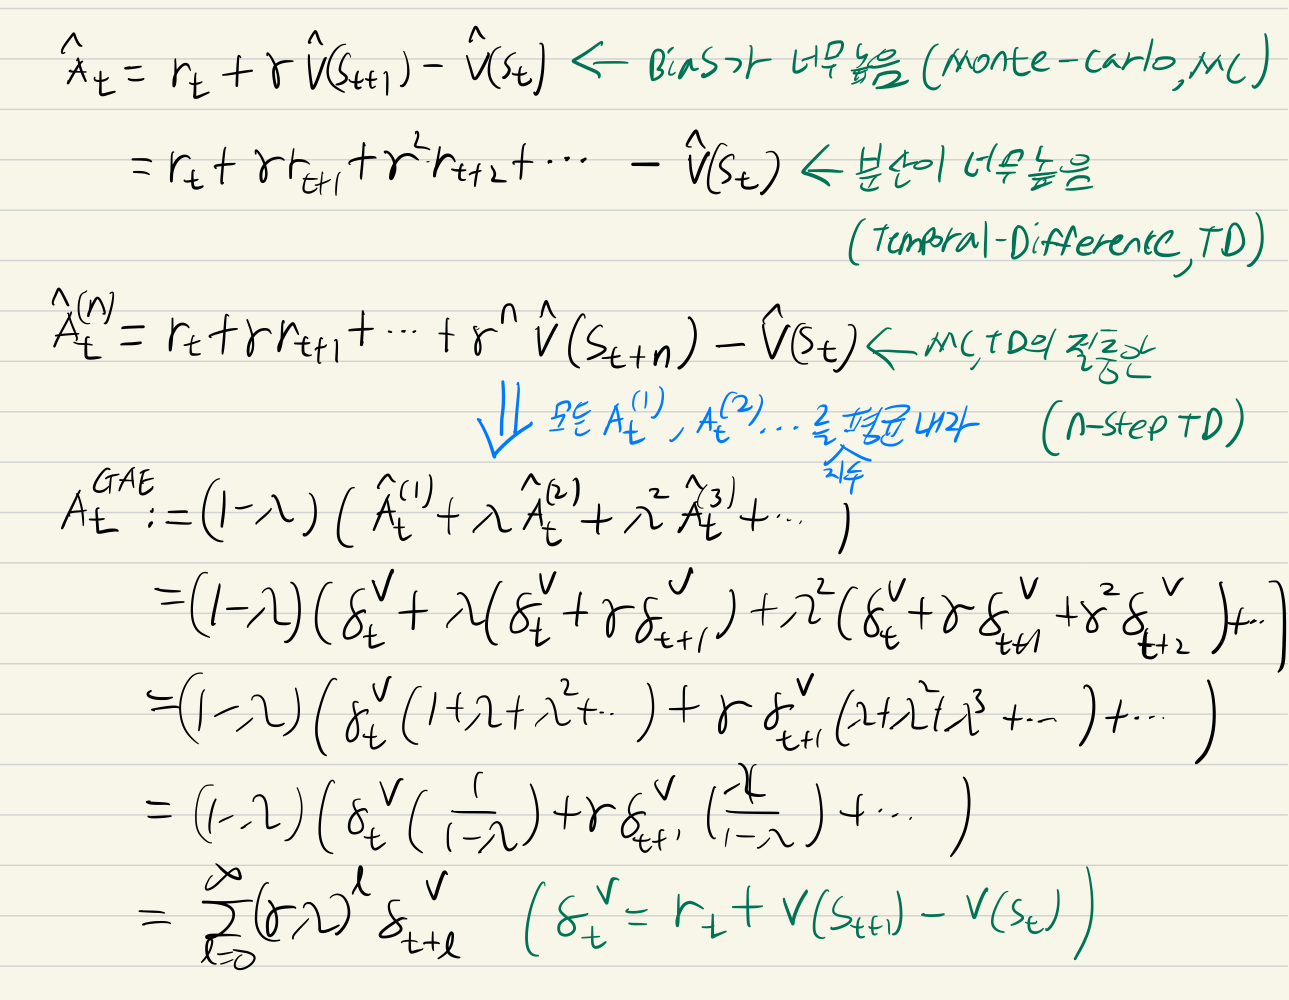 Â_t = r_t + γ V̂(S_{t+1}) − V̂(S_t) ← Bias가 너무 높음 (Monte-Carlo, MC)
= r_t + γ r_{t+1} + γ² r_{t+2} + ⋯ − V̂(S_t) ← 분산이 너무 높음
(Temporal-Difference, TD)
Â_t^{(n)} = r_t + γ r_{t+1} + ⋯ + γ^n V̂(S_{t+n}) − V̂(S_t) ← MC, TD의 절충안
(n-step TD)
⇓ 모든 A_t^{(1)}, A_t^{(2)}, ... 를 평균 내자
지수
A_t^{GAE} := (1−λ) ( Â_t^{(1)} + λ Â_t^{(2)} + λ² Â_t^{(3)} + ⋯ )
= (1−λ)(δ_t^V + λ(δ_t^V + γ δ_{t+1}^V) + λ²(δ_t^V + γ δ_{t+1}^V + γ² δ_{t+2}^V) + ⋯)
= (1−λ)(δ_t^V (1+λ+λ²+⋯) + γ δ_{t+1}^V (λ+λ²+λ³+⋯) + ⋯)
= (1−λ)(δ_t^V (1/(1−λ)) + γ δ_{t+1}^V (λ/(1−λ)) + ⋯)
= Σ_{l=0}^{∞} (γλ)^l δ_{t+l}^V (δ_t^V = r_t + V(S_{t+1}) − V(S_t))